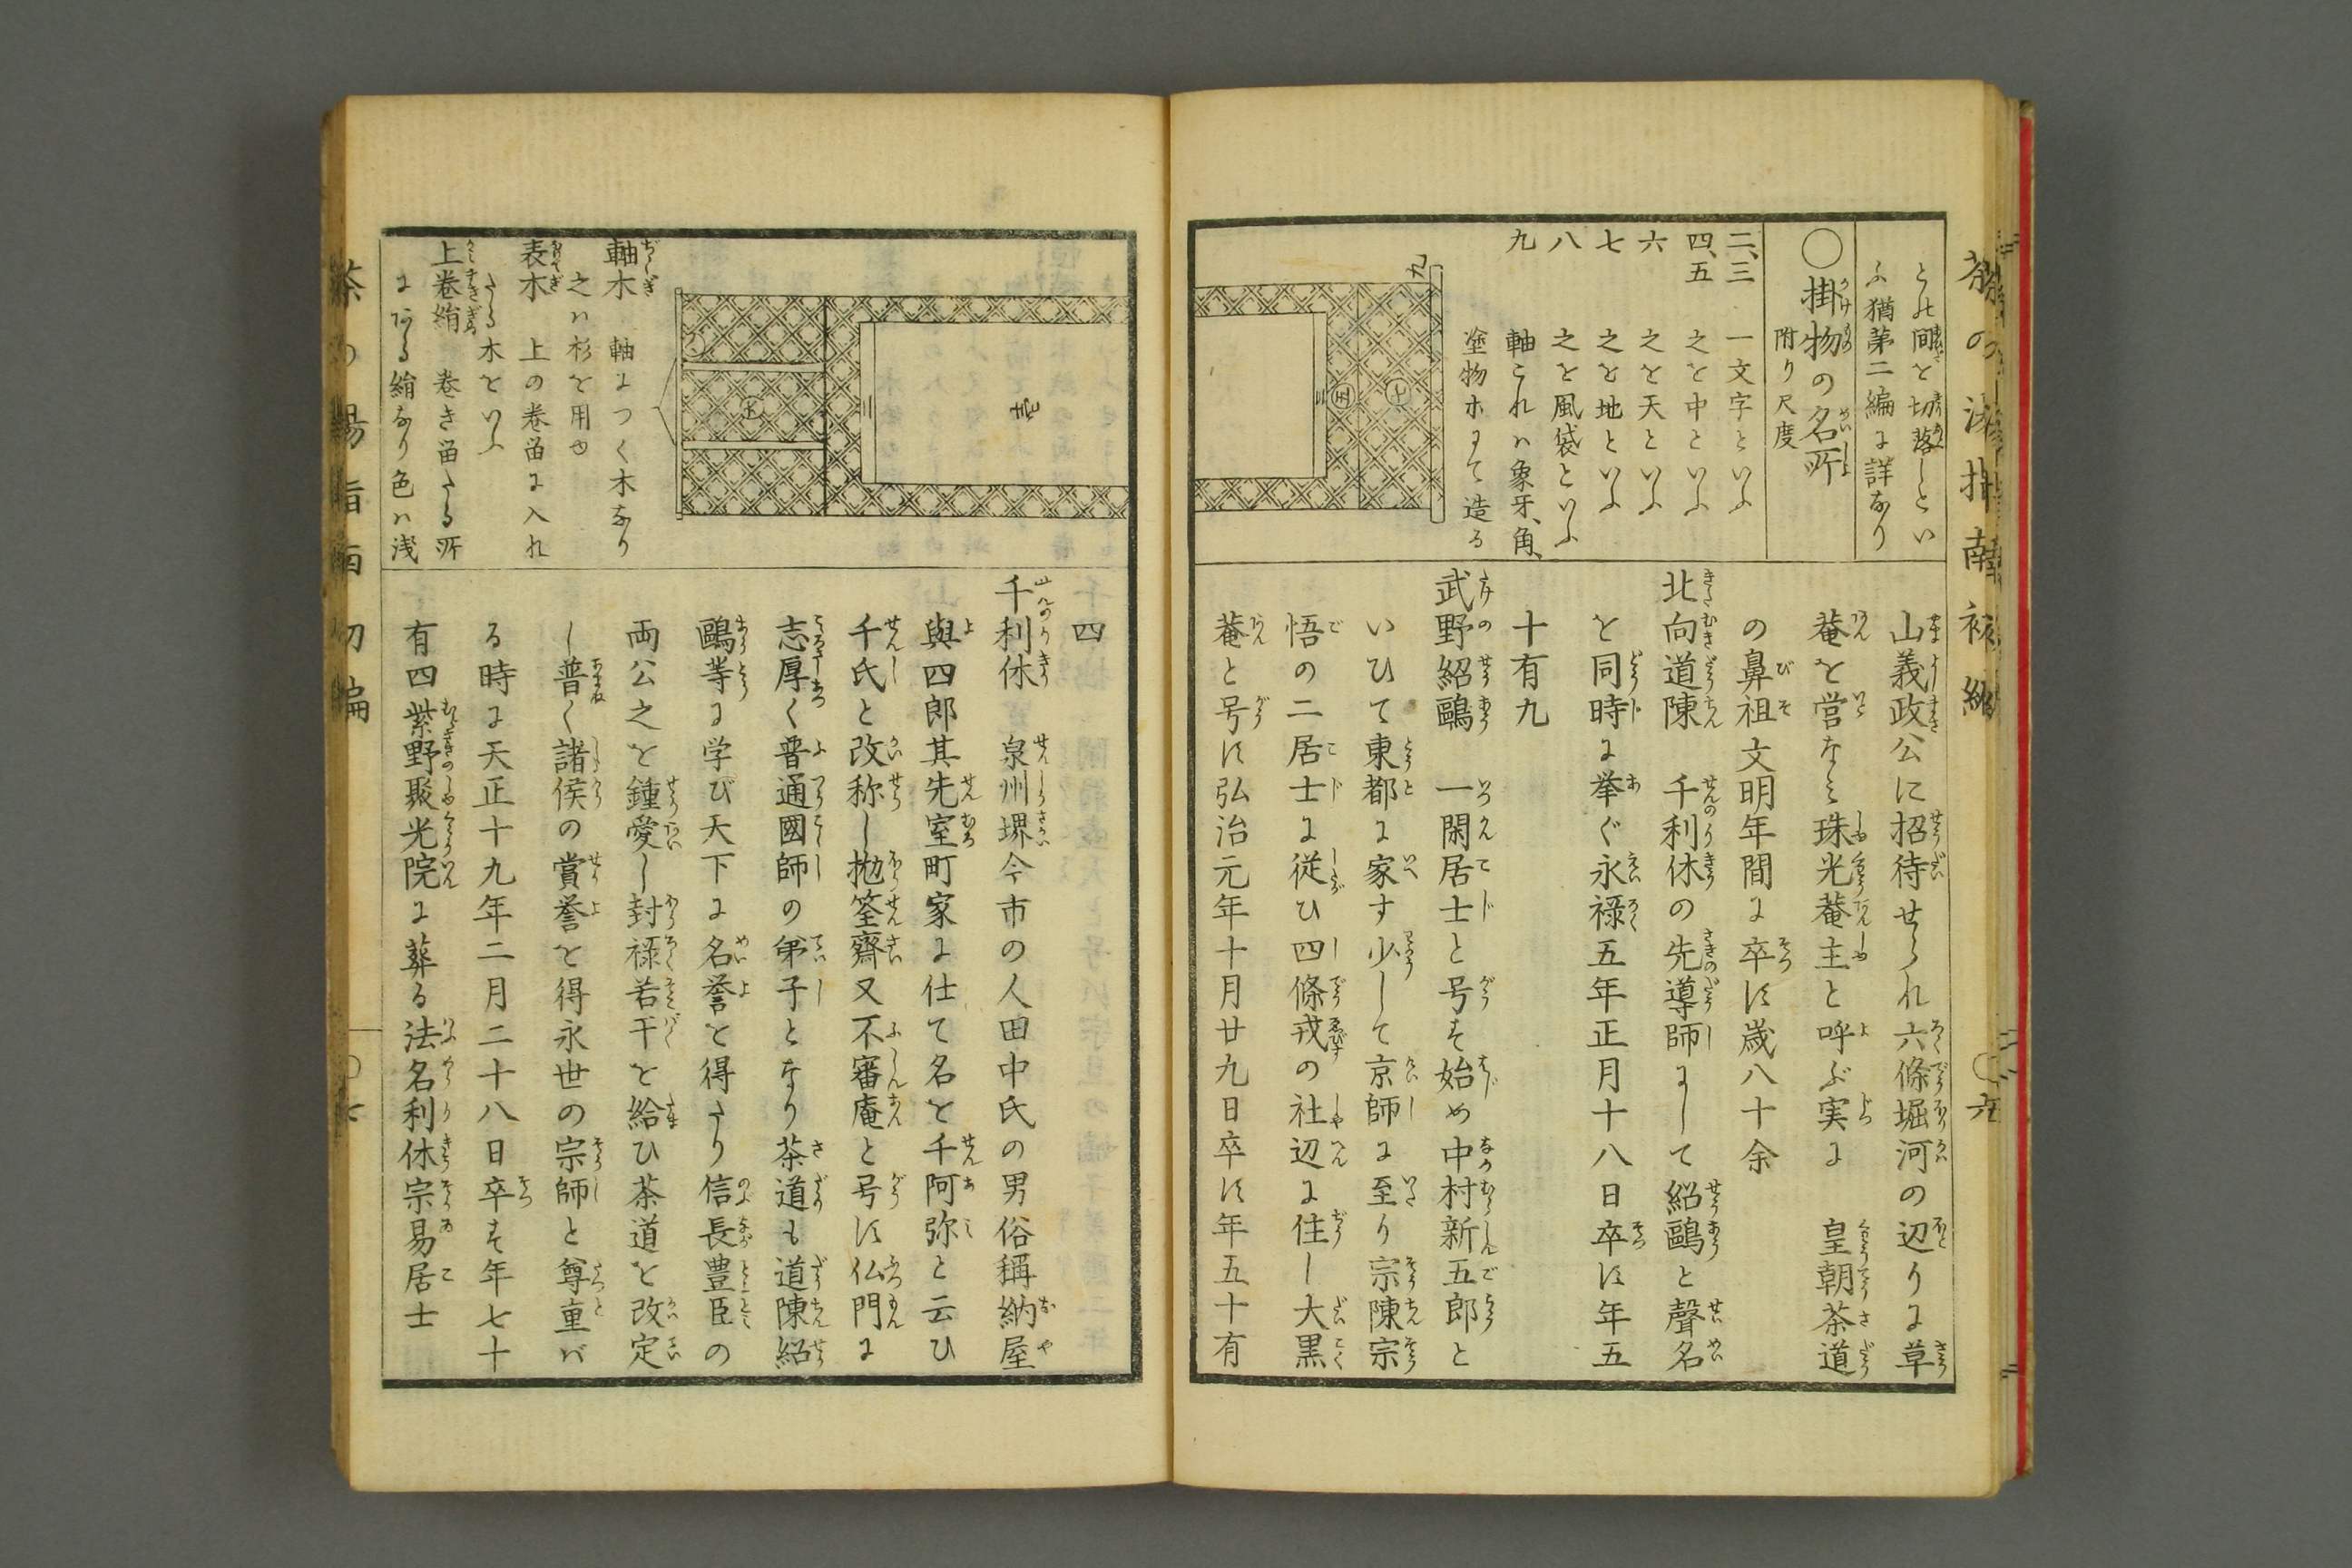 との間を切落しとい
ふ猶第二編に詳なり
〇掛物の名所
附り尺度
二、三 一文字といふ
四、五 之を中といふ
六 之を天といふ
七 之を地といふ
八 之を風袋といふ
九 軸これハ象牙、角、
塗物木にて造る
九
七
四
二
山義政公に招待せられ六條堀河の辺りに草
菴を営なミ珠光菴主と呼ぶ実に 皇朝茶道
の鼻祖文明年間に卒す歳八十余
北向道陳 千利休の先導師にして紹鷗と聲名
を同時に挙ぐ永禄五年正月十八日卒す年五
十有九
武野紹鷗 一閑居士と号す始め中村新五郎と
いひて東都に家す少して京師に至り宗陳宗
悟の二居士に従ひ四條戎の社辺に住し大黒
菴と号す弘治元年十月廿九日卒す年五十有
四
千利休 泉州堺今市の人田中氏の男俗稱納屋
與四郎其先室町家に仕て名を千阿弥と云ひ
千氏と改称し抛筌齋又不審庵と号す仏門に
志厚く普通國師の弟子となり茶道も道陳紹
鷗等に学び天下に名誉を得たり信長豊臣の
両公之を鍾愛し封禄若干を給ひ茶道を改定
し普く諸侯の賞誉を得永世の宗師と尊重バ
る時に天正十九年二月二十八日卒す年七十
有四紫野聚光院に葬る法名利休宗易居士
三
五
八
軸木 軸につく木なり
之ハ杉を用ゆ
表木 上の巻留に入れ
たる木をいふ
上巻絹 巻き留たる所
にある絹なり色ハ浅
茶の湯指南初編
〇七
〇六